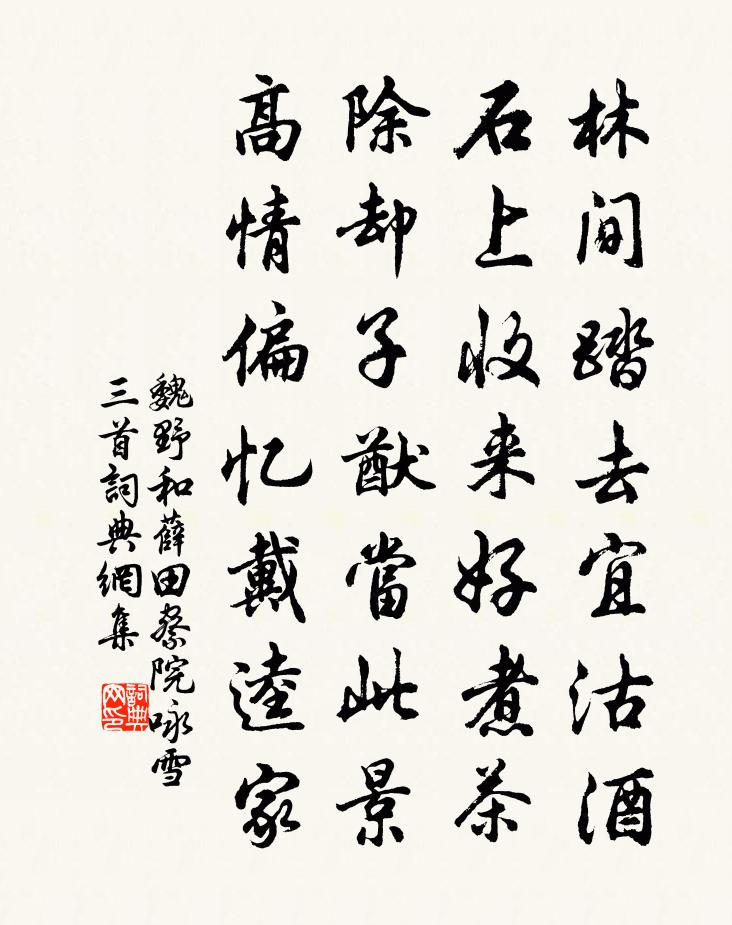 林间踏去宜沽酒
石上收来好煮茶
除却子猷當此景
高情偏忆戴逵家
魏野和薛田察院咏雪
三首詞典網集
詞典网印